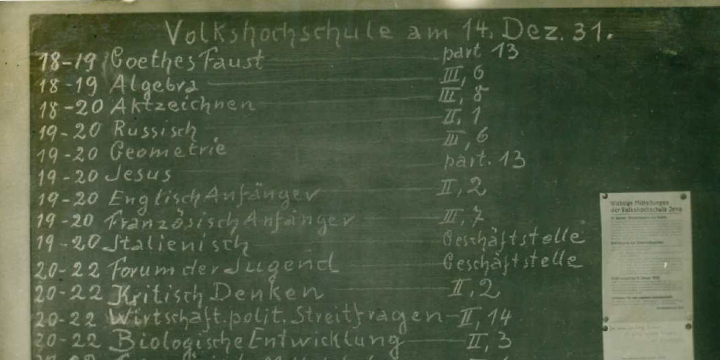 Volkshochschule am 14. Dez. 31.
18-19 Goethes Faust part 13
18-19 Algebra III, 6
18-20 Aktzeichnen III, 8
19-20 Russisch II, 1
19-20 Geometrie III, 6
19-20 Jesus part. 13
19-20 Englisch Anfänger II, 2
19-20 Französisch Anfänger III, 7
19-20 Italienisch Geschäftstelle
20-22 Forum der Jugend Geschäftstelle
20-22 Kritisch Denken II, 2
20-22 Wirtschaft. polit. Streitfragen II, 14
20-22 Biologische Entwicklung II, 3
Wichtige Mitteilungen
der Volkshochschule Jena